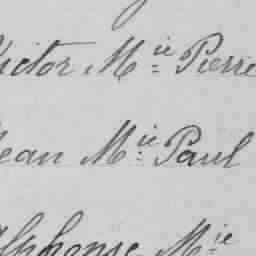 Victor M.ie Pierre
Jean M.ie Paul
Alphonse M.ie